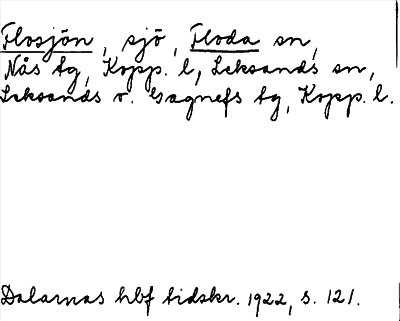 Flosjön, sjö, Floda sn,
Nås tg, Kopp. l, Leksands sn,
Leksands o. Gagnefs tg, Kopp. l.
Dalarnas hbf tidskr. 1922, s. 121.